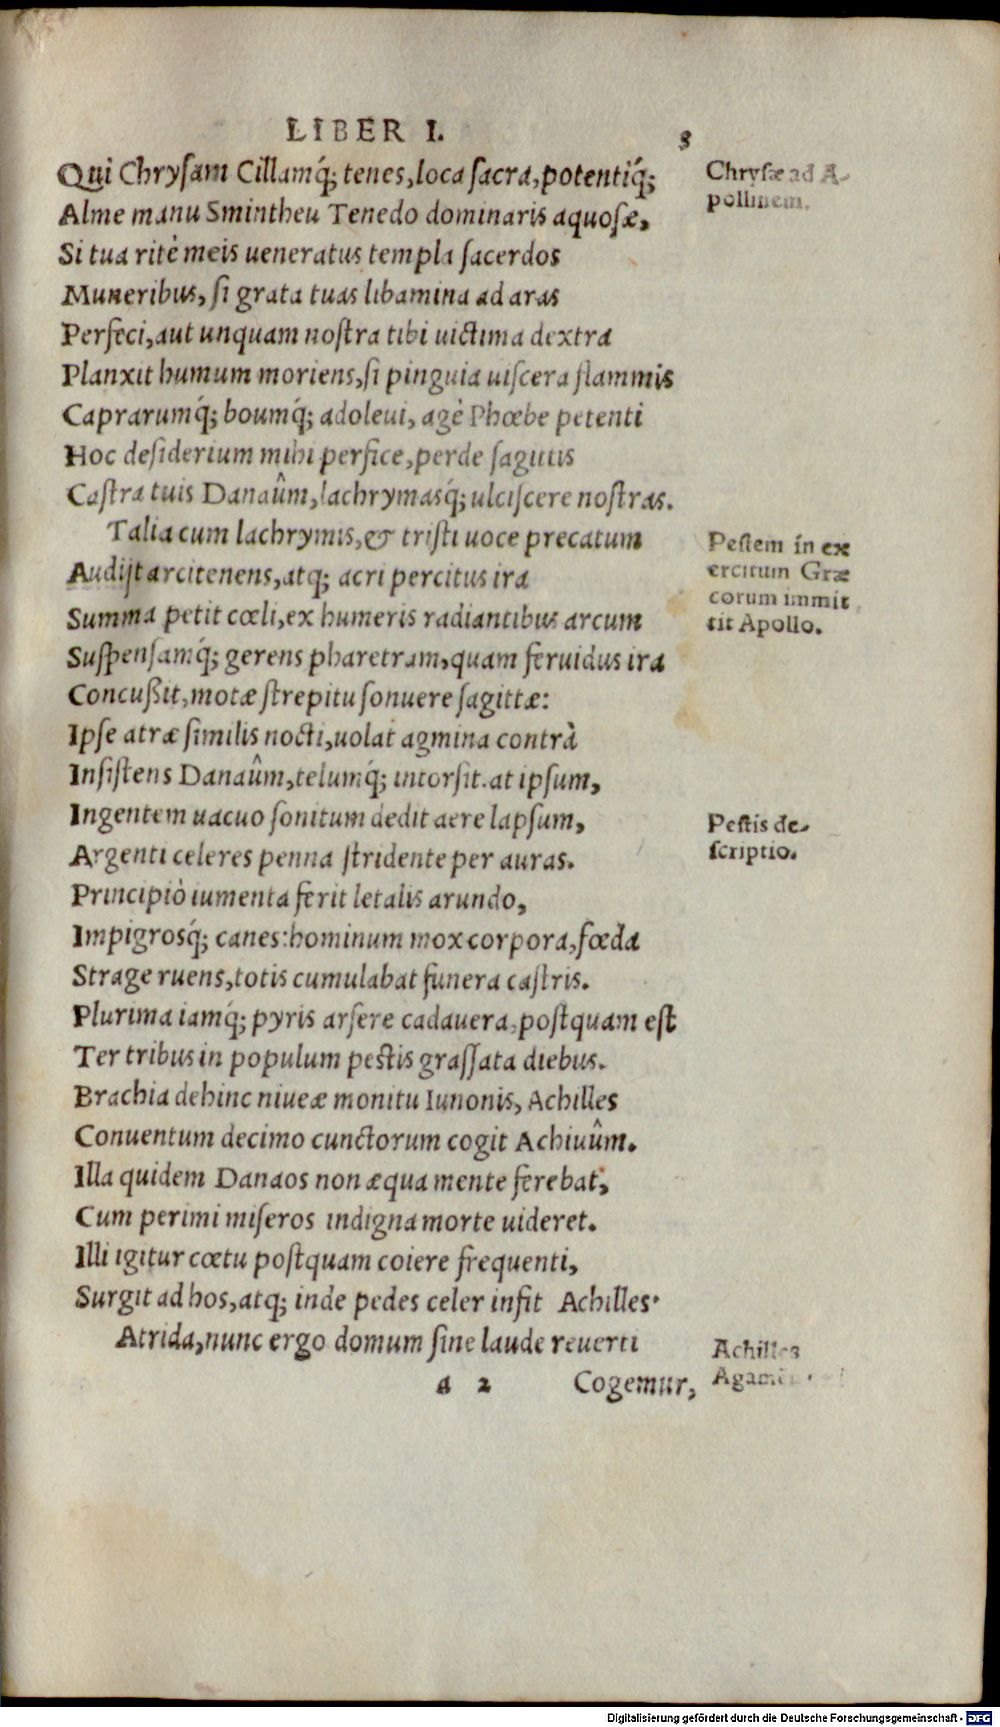 LIBER I.
3
Qui Chryſam Cillamq́; tenes, loca ſacra, potentiq́;
Alme manu Smintheu Tenedo dominaris aquoſæ,
Si tua ritè meis ueneratus templa ſacerdos
Muneribus, ſi grata tuas libamina ad aras
Perfeci, aut unquam noſtra tibi uictima dextra
Planxit humum moriens, ſi pinguia uiſcera flammis
Caprarumq́; boumq́; adoleui, agè Phœbe petenti
Hoc deſiderium mihi perfice, perde ſagittis
Caſtra tuis Danaûm, lachrymasq́; ulciſcere noſtras.
Talia cum lachrymis, & triſti uoce precatum
Audijt arcitenens, atq; acri percitus ira
Summa petit cœli, ex humeris radiantibus arcum
Suſpenſamq́; gerens pharetram, quam feruidus ira
Concußit, motæ ſtrepitu ſonuere ſagittæ:
Ipſe atræ ſimilis nocti, uolat agmina contrà
Inſiſtens Danaûm, telumq́; intorſit. at ipſum,
Ingentem uacuo ſonitum dedit aere lapſum,
Argenti celeres penna ſtridente per auras.
Principiò iumenta ferit letalis arundo,
Impigrosq́; canes: hominum mox corpora, fœda
Strage ruens, totis cumulabat funera caſtris.
Plurima iamq́; pyris arſere cadauera, poſtquam eſt
Ter tribus in populum peſtis graſſata diebus.
Brachia dehinc niueæ monitu Iunonis, Achilles
Conuentum decimo cunctorum cogit Achiuûm.
Illa quidem Danaos non æqua mente ferebat,
Cum perimi miſeros indigna morte uideret.
Illi igitur cœtu poſtquam coiere frequenti,
Surgit ad hos, atq; inde pedes celer infit Achilles.
Atrida, nunc ergo domum ſine laude reuerti
a 2 Cogemur,
Chryſæ ad A-
pollinem.
Peſtem in ex
ercitum Græ
corum immit
tit Apollo.
Peſtis de-
ſcriptio.
Achilles
Digitalisierung gefördert durch die Deutsche Forschungsgemeinschaft - DFG